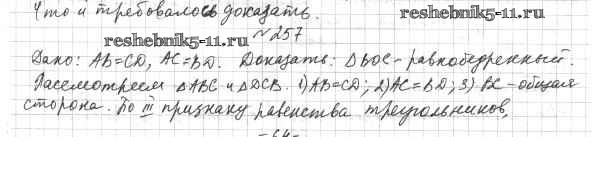 Что и требовалось доказать.
reshebnik5-11.ru
№257
reshebnik5-11.ru
Дано: AB=CD, AC=BD. Доказать: △BOC - равнобедренный.
Рассмотреем △ABC и △DCB. 1) AB=CD; 2) AC=BD; 3) BC - общая
сторона. По III признаку равенства треугольников,
-64-